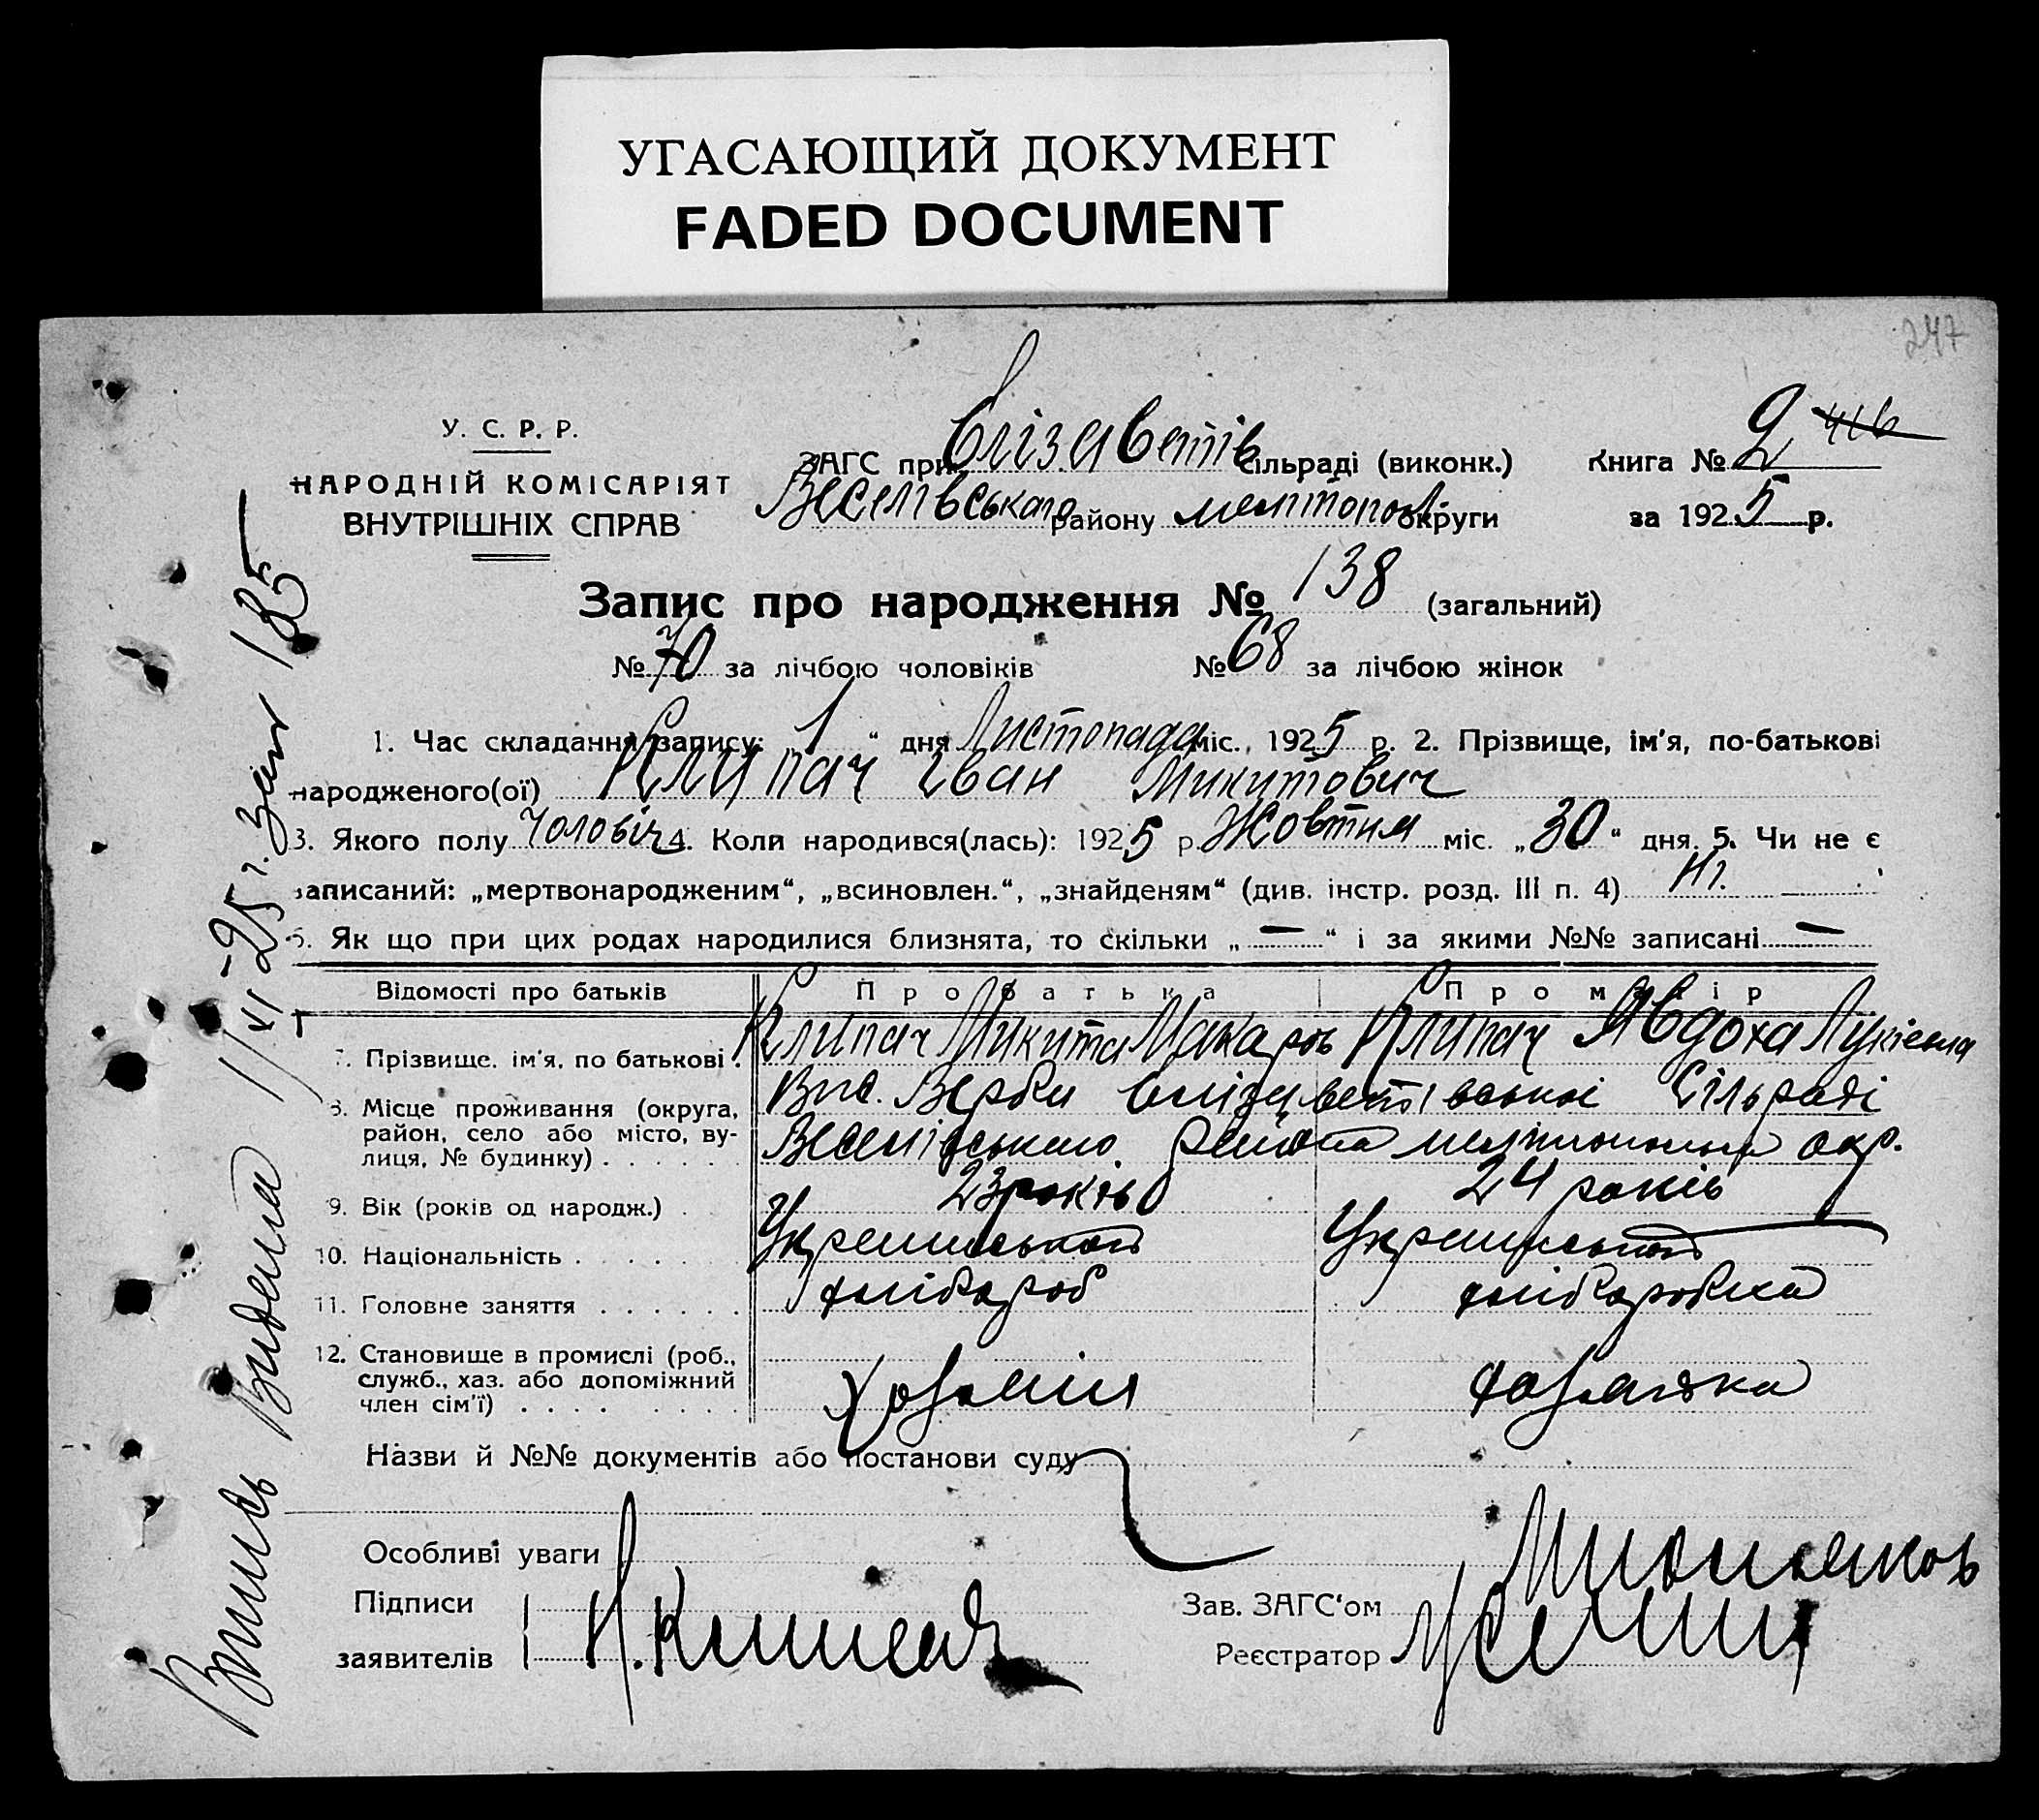 УГАСАЮЩИЙ ДОКУМЕНТ
FADED DOCUMENT
247
У. С. Р. Р.
НАРОДНІЙ КОМІСАРІЯТ
ВНУТРІШНІХ СПРАВ
ЗАГС при Єлізаветів сільраді (виконк.) Книга № 2
Веселівського району мелітопол округи за 1925 р.
Запис про народження № 138 (загальний)
№ 70 за лічбою чоловіків № 68 за лічбою жінок
1. Час складання запису: 1 " дня Листопада міс., 1925 р. 2. Прізвище, ім'я, по-батькові
народженого(ої) Клипач Іван Микитович
3. Якого полу Чоловіч 4. Коли народився(лась): 1925 р. Жовтня міс. „30" дня. 5. Чи не є
записаний: „мертвонародженим", „всиновлен.", „знайденям" (див. інстр. розд. III п. 4) Ні.
6. Як що при цих родах народилися близнята, то скільки „ — " і за якими №№ записані —
Відомості про батьків Про батька Про матір
7. Прізвище, ім'я, по батькові. Клипач Микита Макаров Клипач Явдоха Лукієвна
8. Місце проживання (округа, Вис. Верби Єлізаветівської Сільраді
район, село або місто, ву- Веселівського района мелітопольсь окр.
лиця, № будинку) . . . . . .
9. Вік (років од народж.) . 23 років 24 років
10. Національність . . . . . . . Української Української
11. Головне заняття . . . . . . хлібороб хліборобка
12. Становище в промислі (роб.,
служб., хаз. або допоміжний Хозяїн хозяйка
член сім'ї) . . . . . . . .
Назви й №№ документів або постанови суду
Особливі уваги
Підписи
заявителів
Зав. ЗАГС'ом
Реєстратор
Випись Видена 1/XI-25 г. За № 185